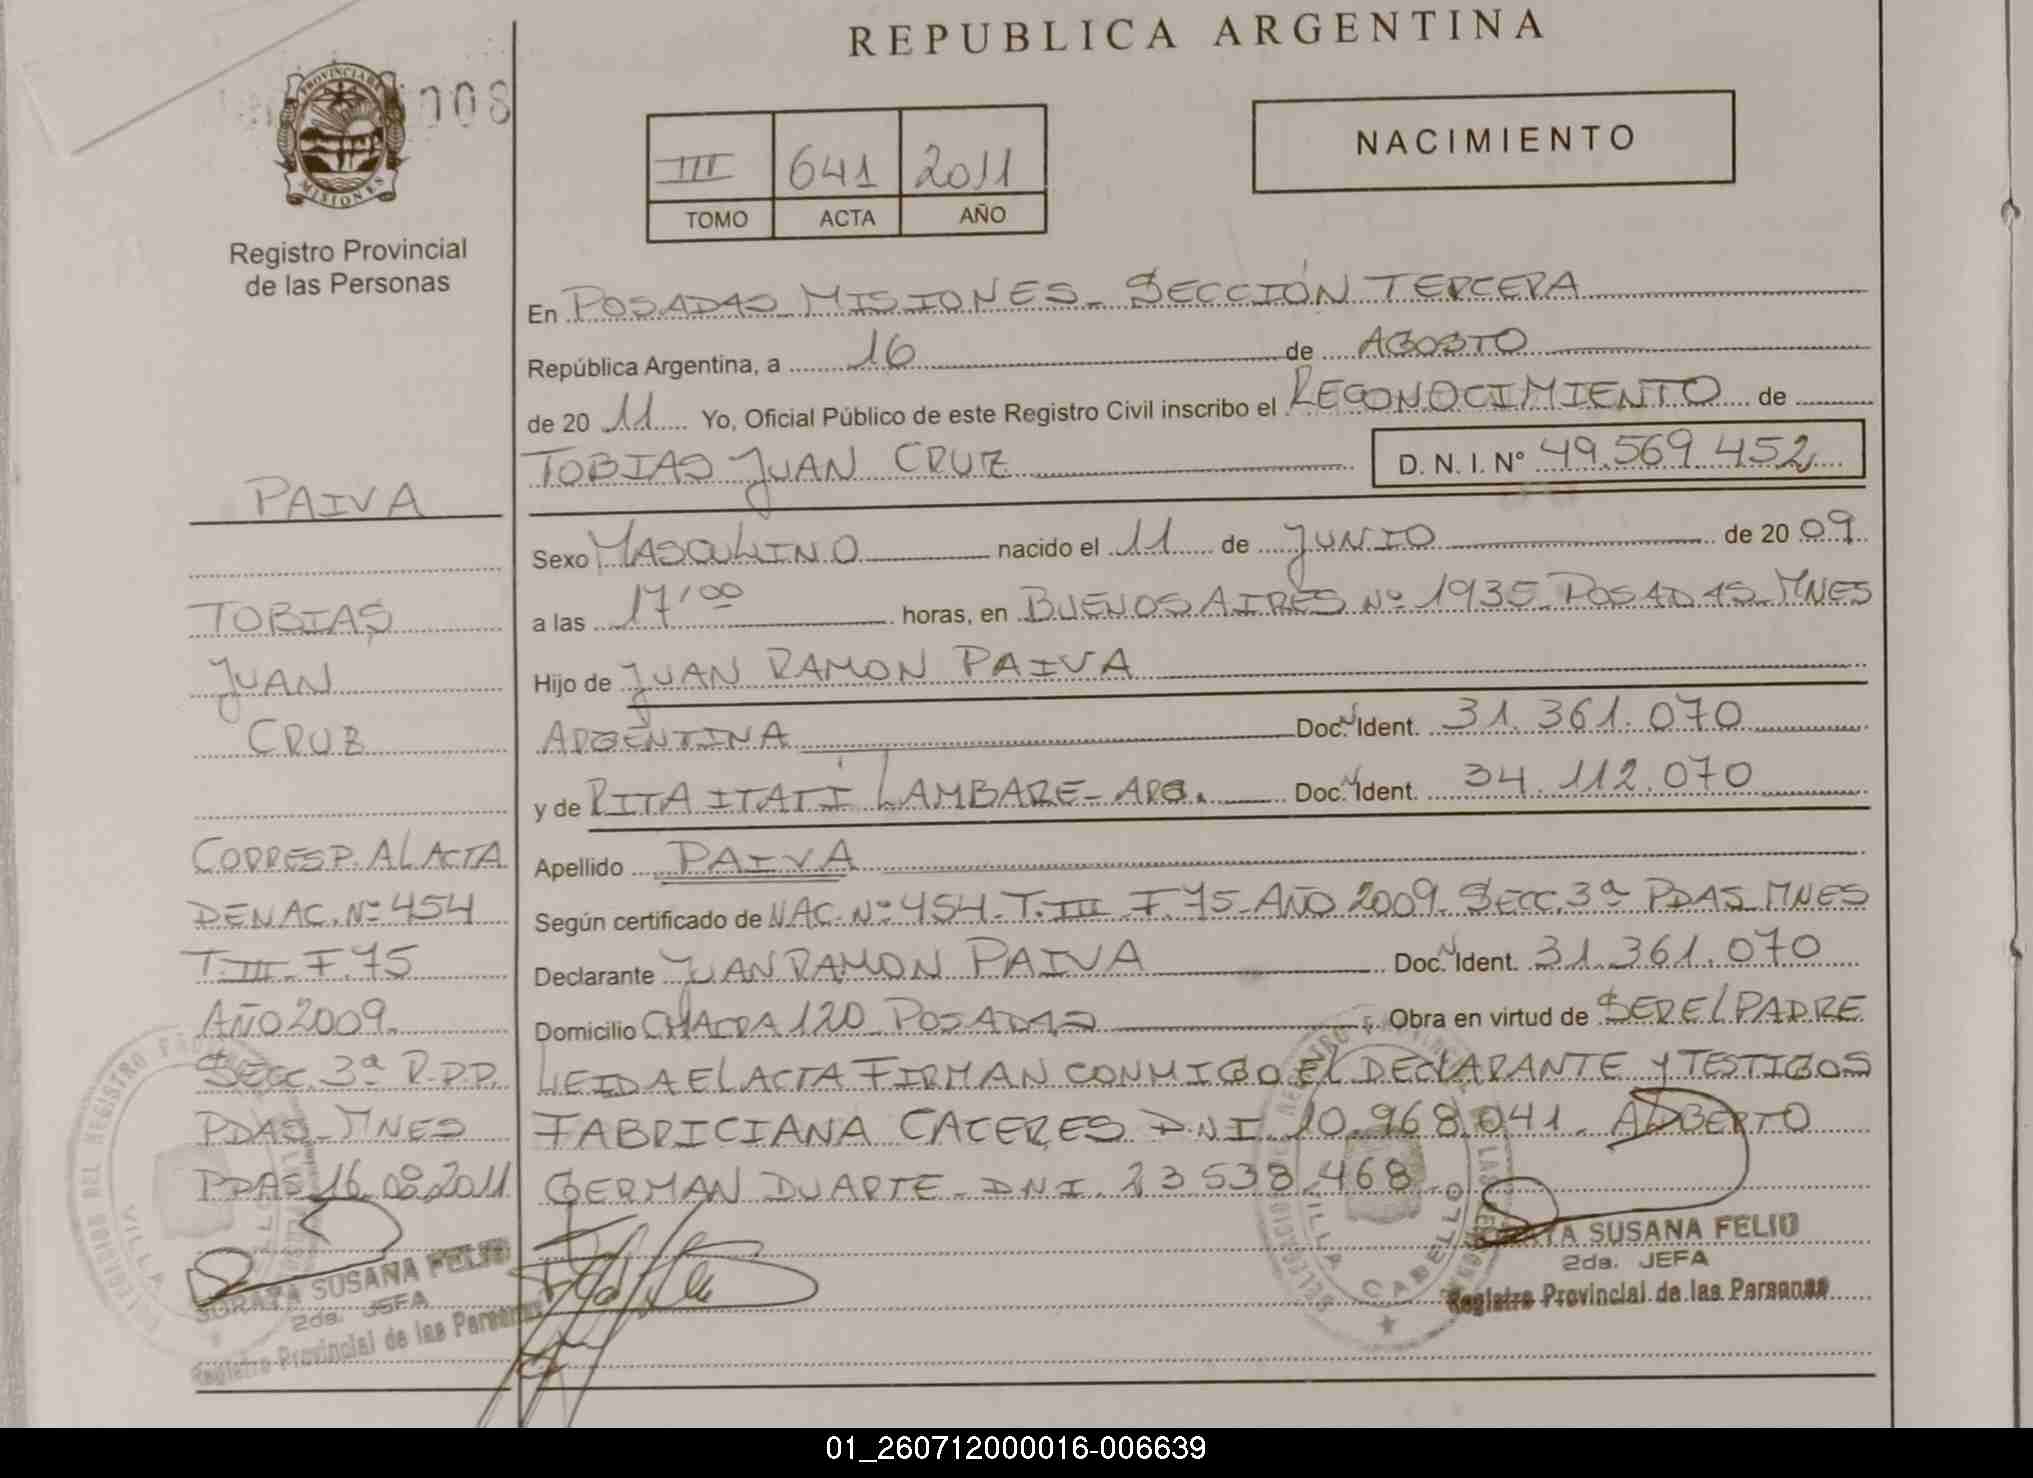 REPUBLICA ARGENTINA
008
PROVINCIA DE MISIONES
Registro Provincial
de las Personas
III 641 2011
TOMO ACTA AÑO
NACIMIENTO
En POSADAS MISIONES - SECCIÓN TERCERA
República Argentina, a 16 de AGOSTO
de 2011 Yo, Oficial Público de este Registro Civil inscribo el RECONOCIMIENTO de
TOBIAS JUAN CRUZ D. N. I. Nº 49.569.452
Sexo MASCULINO nacido el 11 de JUNIO de 2009
a las 17'00 horas, en BUENOS AIRES Nº 1935 POSADAS - MNES
Hijo de JUAN RAMON PAIVA
ARGENTINA Doc. Nº Ident. 31.361.070
y de RITA ITATÍ LAMBARE - ARG. Doc. Nº Ident. 34.112.070
Apellido PAIVA
Según certificado de NAC. Nº 454 - T. III - F. 75 - AÑO 2009 - SECC. 3ª PDAS - MNES
Declarante JUAN RAMON PAIVA Doc. Nº Ident. 31.361.070
Domicilio CHACRA 120 POSADAS Obra en virtud de SER EL PADRE
LEIDA EL ACTA FIRMAN CONMIGO EL DECLARANTE Y TESTIGOS
FABRICIANA CACERES DNI 10.968.041 - ADBERTO
GERMAN DUARTE - DNI. 23538.468
SORAYA SUSANA FELIU
2da. JEFA
Registro Provincial de las Personas
PAIVA
TOBIAS
JUAN
CRUZ
CORRESP. AL ACTA
DE NAC. Nº 454
T. III - F. 75
AÑO 2009
SECC. 3ª R.P.P.
PDAS - MNES
PDAS 16.08.2011
SORAYA SUSANA FELIU
2da. JEFA
Registro Provincial de las Personas
VILLA CABELLO
01_260712000016-006639